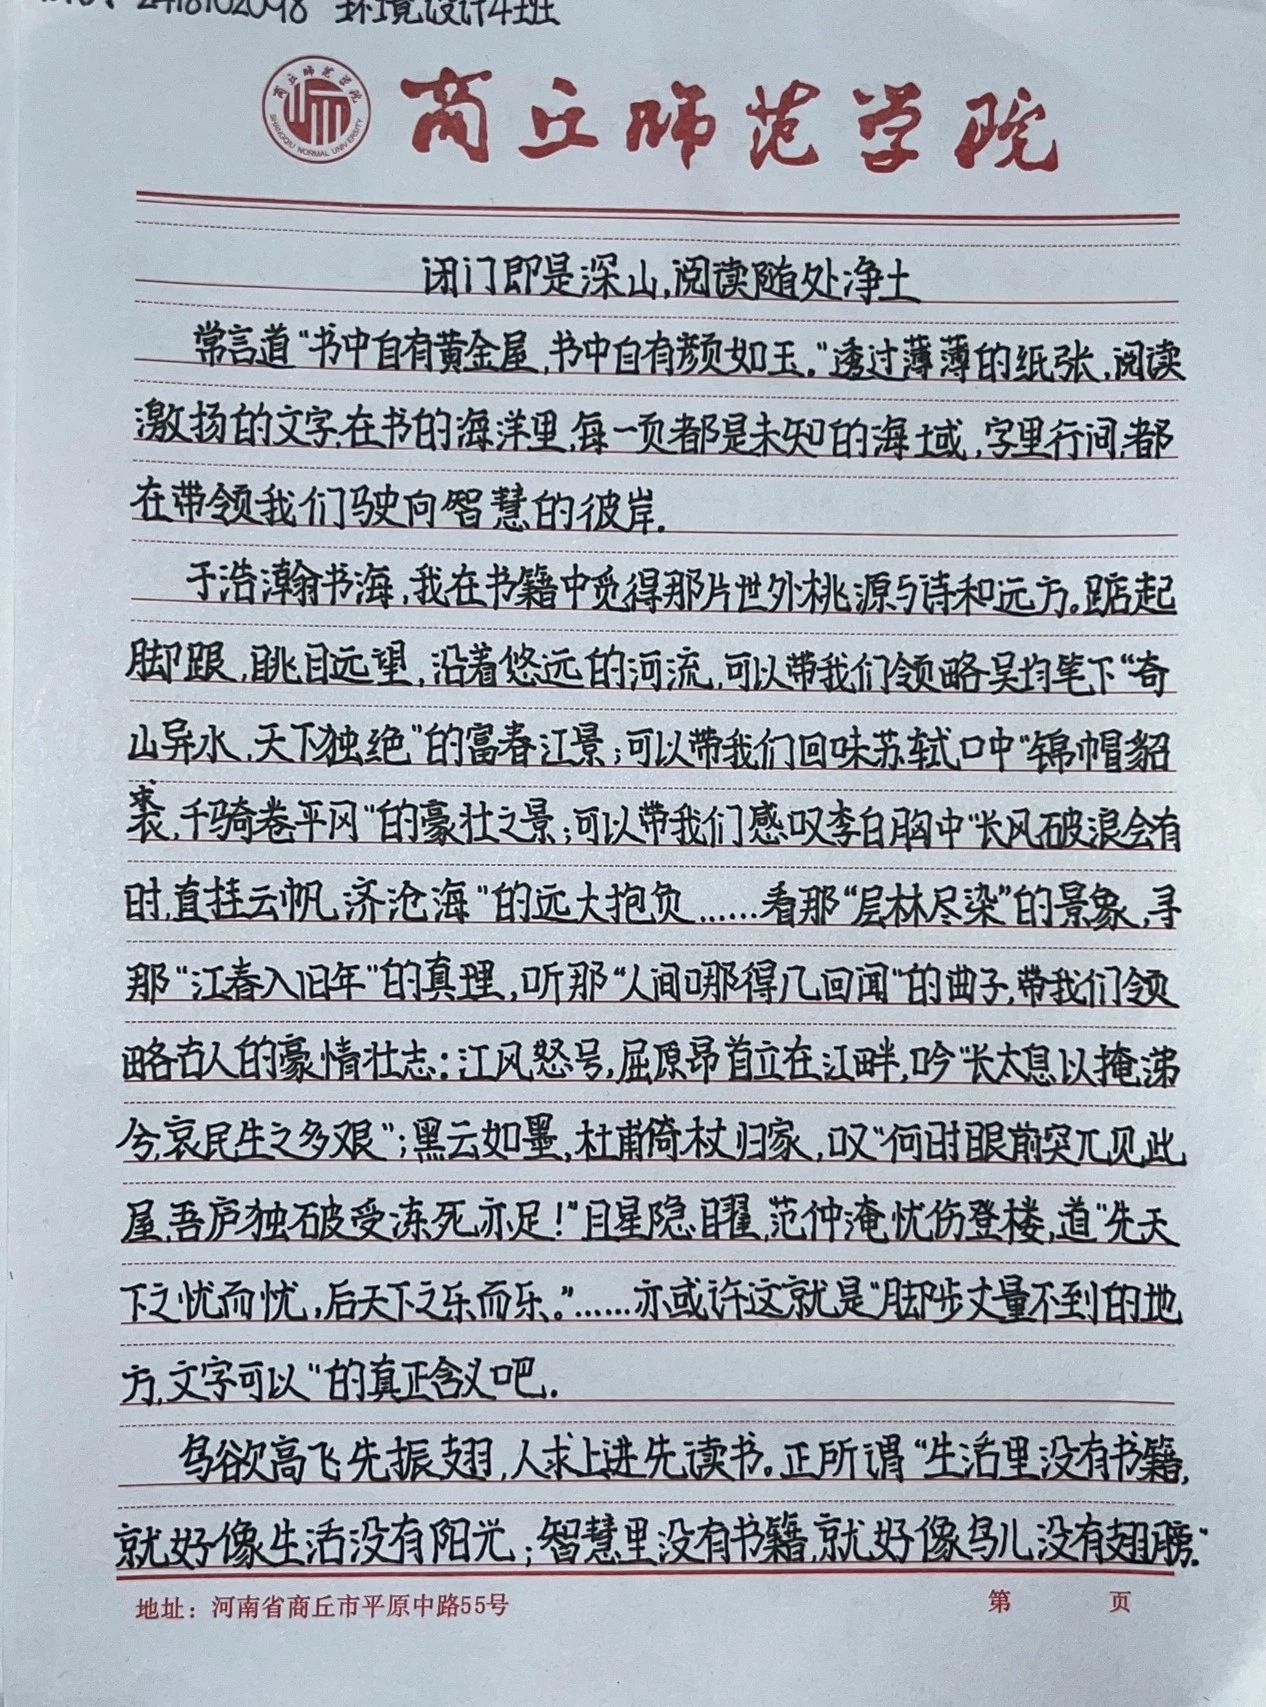 2418102098 环境设计4班
商丘师范学院
SHANGQIU NORMAL UNIVERSITY
商丘师范学院
闭门即是深山,阅读随处净土
常言道"书中自有黄金屋,书中自有颜如玉。"透过薄薄的纸张,阅读
激扬的文字,在书的海洋里,每一页都是未知的海域,字里行间,都
在带领我们驶向智慧的彼岸.
于浩瀚书海,我在书籍中觅得那片世外桃源与诗和远方。踮起
脚跟,眺目远望,沿着悠远的河流,可以带我们领略吴均笔下"奇
山异水,天下独绝"的富春江景;可以带我们回味苏轼口中"锦帽貂
裘,千骑卷平冈"的豪壮之景;可以带我们感叹李白胸中"长风破浪会有
时,直挂云帆济沧海"的远大抱负......看那"层林尽染"的景象,寻
那"江春入旧年"的真理,听那"人间哪得几回闻"的曲子,带我们领
略古人的豪情壮志:江风怒号,屈原昂首立在江畔,吟"长太息以掩涕
兮,哀民生之多艰";黑云如墨,杜甫倚杖归家,叹"何时眼前突兀见此
屋,吾庐独破受冻死亦足!"日星隐曜,范仲淹忧伤登楼,道"先天
下之忧而忧,后天下之乐而乐。"......亦或许这就是"脚步丈量不到的地
方,文字可以"的真正含义吧.
鸟欲高飞先振翅,人求上进先读书。正所谓"生活里没有书籍,
就好像生活没有阳光;智慧里没有书籍,就好像鸟儿没有翅膀."
地址:河南省商丘市平原中路55号 第 页